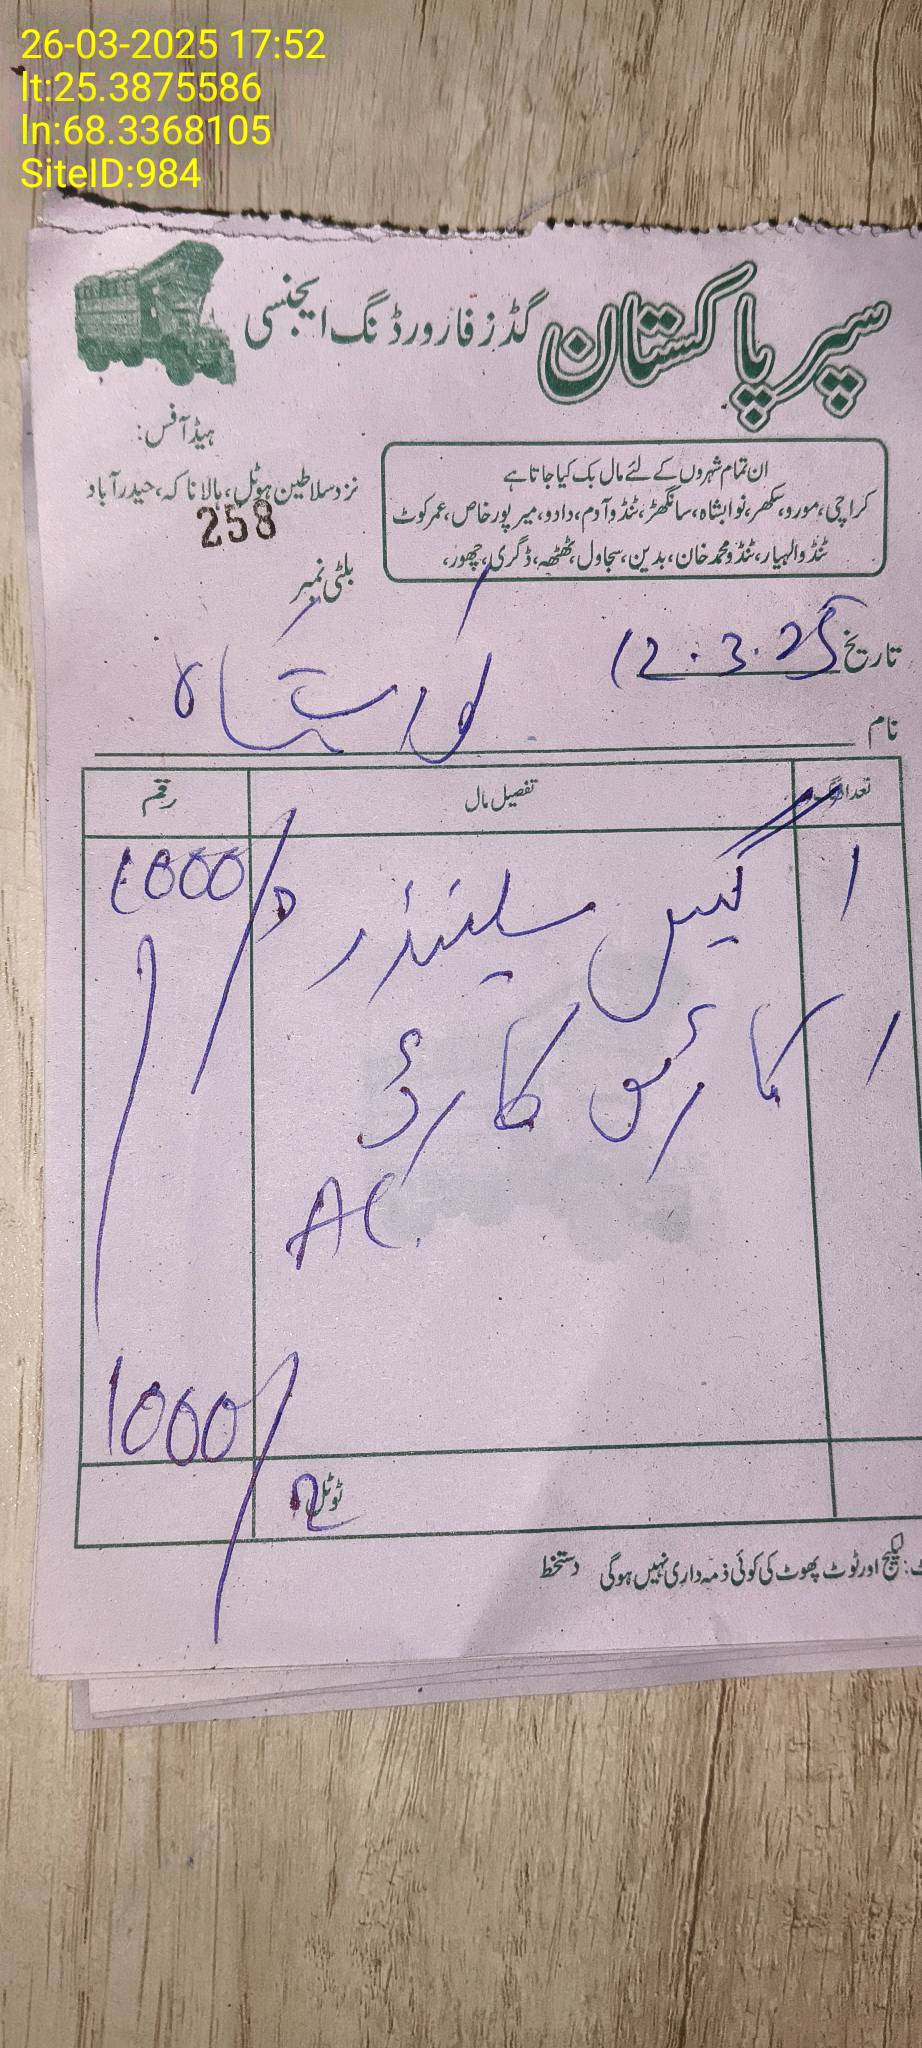 26-03-2025 17:52
lt:25.3875586
ln:68.3368105
SiteID:984
سپر پاکستان گڈز فارورڈنگ ایجنسی
ہیڈ آفس:
نزد سلاطین ہوٹل، ہالا ناکہ، حیدرآباد
ان تمام شہروں کے لئے مال بک کیا جاتا ہے
کراچی، مورو، سکھر، نوابشاہ، سانگھڑ، ٹنڈو آدم، دادو، میرپور خاص، عمر کوٹ
ٹنڈوالہیار، ٹنڈو محمد خان، بدین، سجاول، ٹھٹھہ، ڈگری، چھور،
258
بلٹی نمبر
تاریخ 12.3.25
نام
تعداد تفصیل مال رقم
1 گیس سلینڈر 1000/
1 کارڈ
AC
1000/
ٹوٹل 2
لیکیج اور ٹوٹ پھوٹ کی کوئی ذمہ داری نہیں ہوگی دستخط